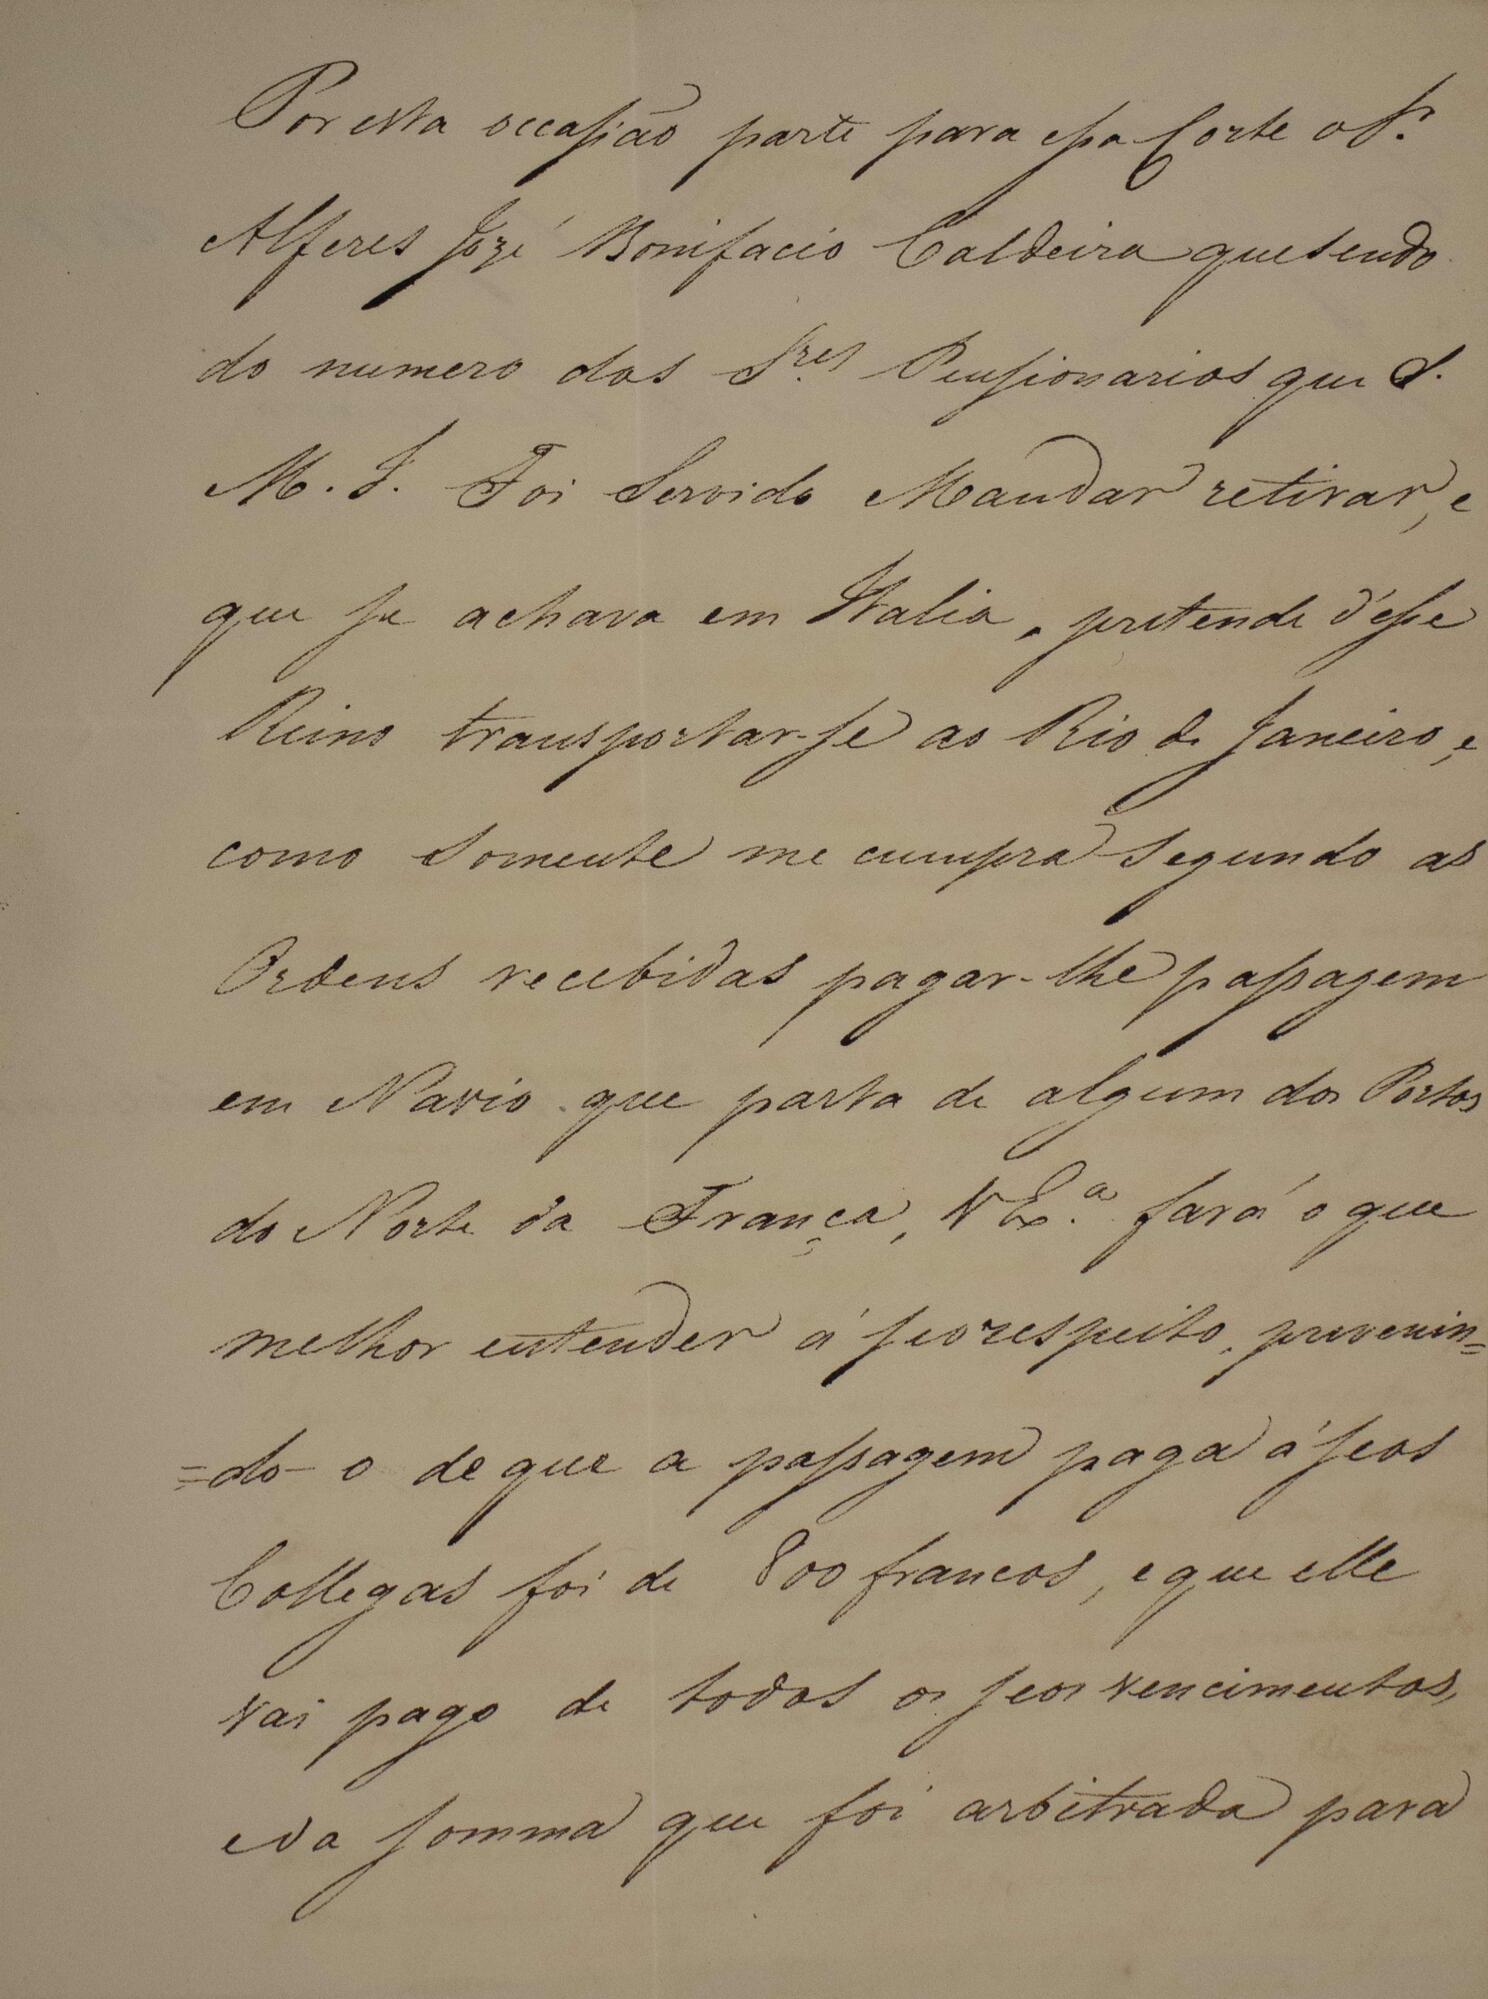 Por esta occasião parte para essa Corte o Sr.
Alferes Jozé Bonifacio Caldeira que sendo
do numero dos Sres. Pensionarios que S.
M. I. Foi Servido Mandar retirar, e
que se achava em Italia, pretende d'esse
Reino transportar-se ao Rio de Janeiro, e
como somente me cumpra segundo as
Ordens recebidas pagar-lhe passagem
em Navio que parta de algum dos Portos
do Norte da França, V Exa. fará o que
melhor entender á seo respeito, prevenin=
=do-o de que a passagem paga á seos
Collegas foi de 800 francos, e que elle
vai pago de todos os seos vencimentos,
e da somma que foi arbitrada para